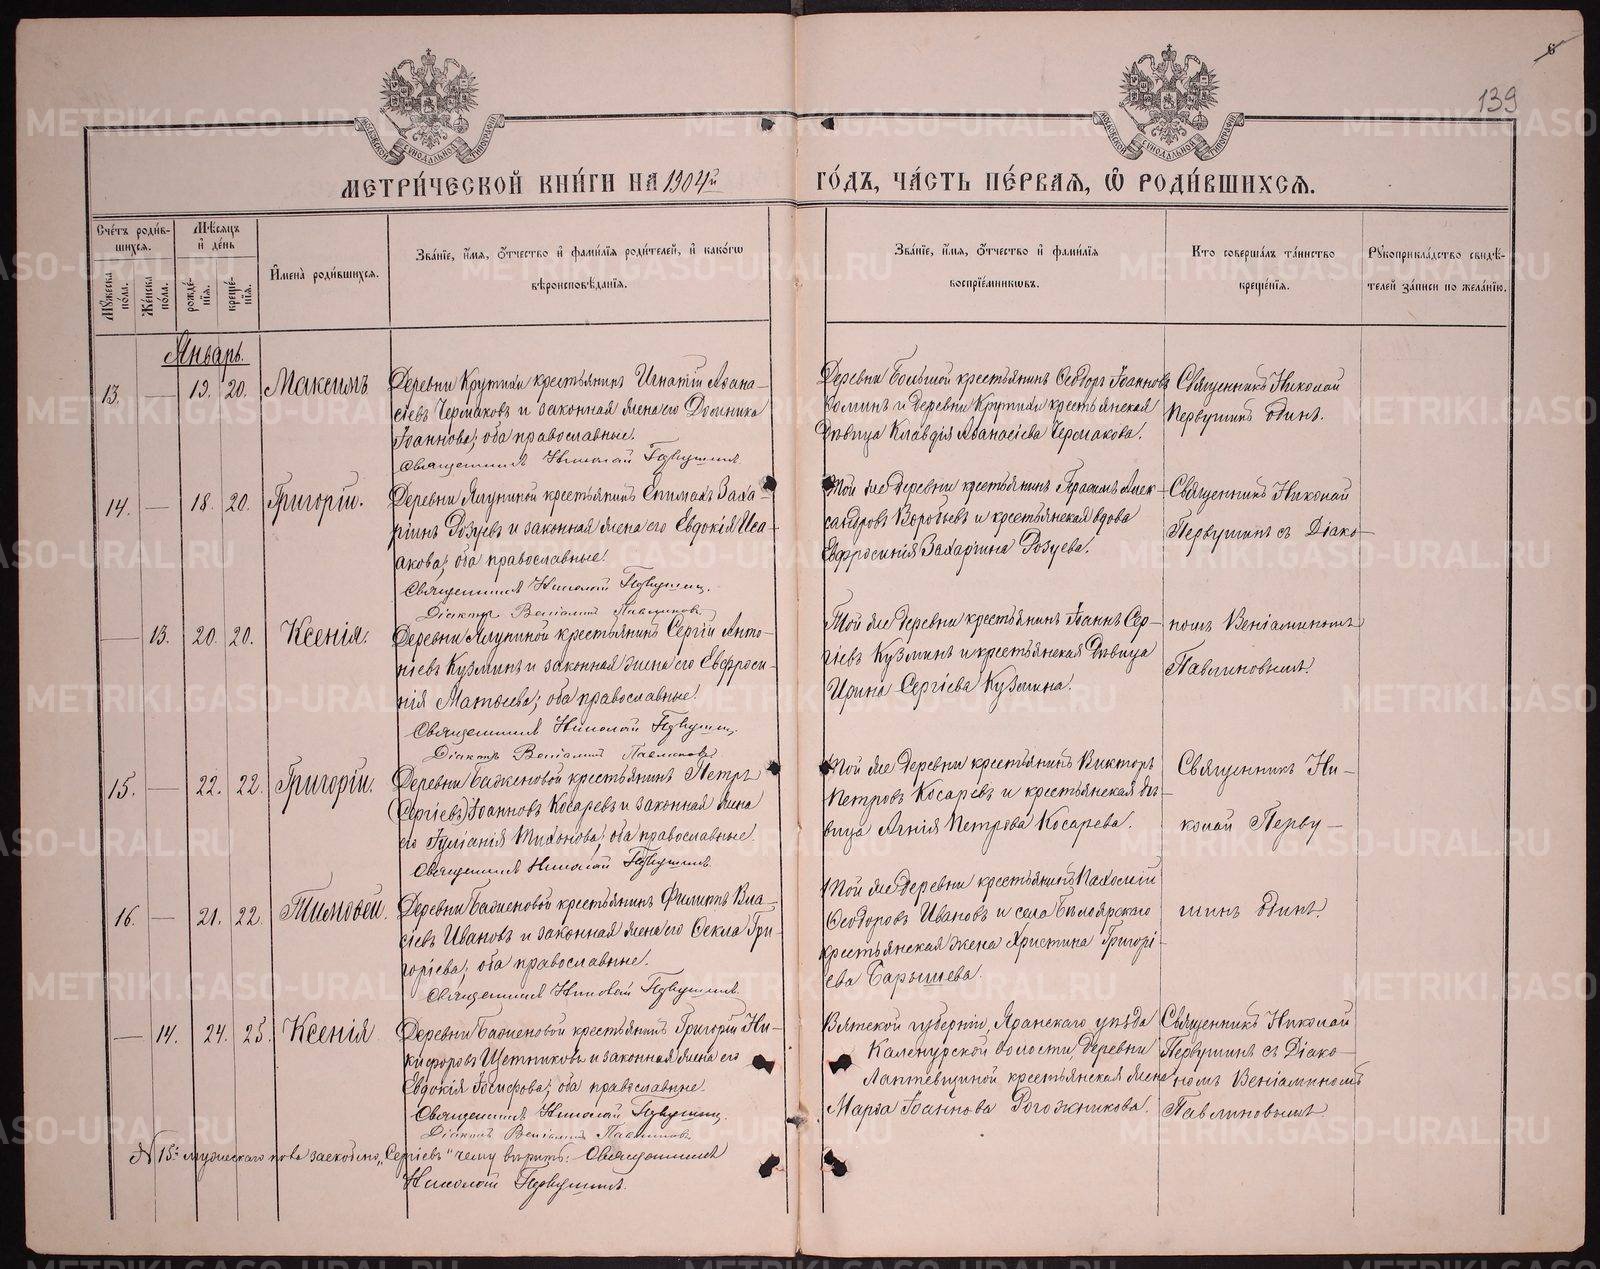 6
139
МЕТРИ́ЧЕСКОЙ КНИ́ГИ НА 1904й ГО́ДЪ, ЧА́СТЬ ПЕ́РВАЯ, Ѿ РОДИ́ВШИХСЯ.
Сче́тъ роди́в-
шихся.
Мѣ́сяцъ
и де́нь
Мꙋ́жеска
по́ла.
Же́нска
по́ла.
рожде́-
нїя.
креще́-
нїя.
И҆мена̀ роди́вшихся.
Зва́нїе, и҆́мя, ѻ҆́тчество и҆ фами́лїя роди́телей, и҆ како́гѡ
вѣроисповѣ́данїя.
Зва́нїе, и҆́мя, ѻ҆́тчество и҆ фами́лїя
воспрїе́мникѡвъ.
Кто̀ соверша́лъ та́инство
креще́нїя.
Рꙋкоприкла́дство свидѣ́-
телей за́писи по жела́нїю.
Январь.
13. — 19. 20. Максимъ
Деревни Крутихи крестьянинъ Игнатій Аѳана-
сіевъ Чермаковъ и законная жена его Домника
Іоаннова; оба православные.
Священникъ Николай Первушинъ
Деревни Большой крестьянинъ Ѳеодоръ Іоанновъ
Ѳоминъ и деревни Крутихи крестьянская
дѣвица Клавдія Аѳанасіева Чермакова.
Священникъ Николай
Первушинъ одинъ.
14. — 18. 20. Григорій.
Деревни Ялуниной крестьянинъ Епимахъ Заха-
ріинъ Розуевъ и законная жена его Евдокія Иса-
акова; оба православные.
Священникъ Николай Первушинъ.
Діаконъ Веніаминъ Павлиновъ
Той же деревни крестьянинъ Герасимъ Алек-
сандровъ Воробьевъ и крестьянская вдова
Евфросинія Захаріина Розуева.
Священникъ Николай
Первушинъ съ Діако-
— 13. 20. 20. Ксенія.
Деревни Ялуниной крестьянинъ Сергій Анто-
ніевъ Кузминъ и законная жена его Евфроси-
нія Матѳеева; оба православные.
Священникъ Николай Первушинъ.
Діаконъ Веніаминъ Павлиновъ
Той же деревни крестьянинъ Іоаннъ Сер-
гіевъ Кузминъ и крестьянская дѣвица
Ирина Сергіева Кузмина.
номъ Веніаминомъ
Павлиновымъ.
15. — 22. 22. Григорій.
Деревни Баженовой крестьянинъ Петръ
(Сергіевъ) Іоанновъ Косаревъ и законная жена
его Іуліанія Тихонова; оба православные.
Священникъ Николай Первушинъ.
Той же деревни крестьянинъ Викторъ
Петровъ Косаревъ и крестьянская дѣ-
вица Агнія Петрова Косарева.
Священникъ Ни-
колай Перву-
16. — 21. 22. Тимоѳей.
Деревни Баженовой крестьянинъ Филиппъ Вла-
сіевъ Ивановъ и законная жена его Ѳекла Гри-
горіева; оба православные.
Священникъ Николай Первушинъ
Той же деревни крестьянинъ Пахомій
Ѳеодоровъ Ивановъ и села Бѣлоярскаго
крестьянская жена Христина Григорі-
ева Барышева.
шинъ одинъ.
— 14. 24. 25. Ксенія
Деревни Баженовой крестьянинъ Григорій Ни-
кифоровъ Щетниковъ и законная жена его
Евдокія Іосифова; оба православные.
Священникъ Николай Первушинъ.
Діаконъ Веніаминъ Павлиновъ
Вятской губерніи, Яранскаго уѣзда
волости, деревни
Лаптевщиной крестьянская жена
Марѳа Іоаннова Рогожникова.
Священникъ Николай
Первушинъ съ Діако-
номъ Веніаминомъ
Павлиновымъ.
№ 15: мужескаго пола заскоблено „Сергіевъ" чему вѣрить: Священникъ
Николай Первушинъ.
METRIKI.GASO-URAL.RU